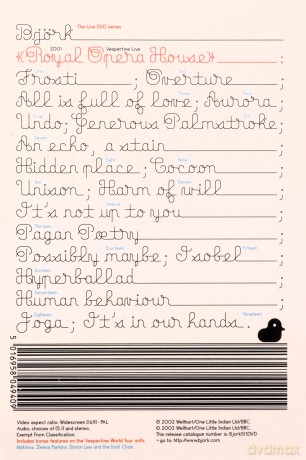 Björk The Live DVD series
2001 Vespertine Live
«Royal Opera House» ;
One Two
Frosti ; Overture ;
Three Four
All is full of love; Aurora;
Five Six
Undo; Generous Palmstroke;
Seven
An echo, a stain ;
Eight Nine
Hidden place; Cocoon ;
Ten Eleven
Unison; Harm of will ;
Twelve
It's not up to you ;
Thirteen
Pagan Poetry ;
Fourteen Fifteen
Possibly maybe; Isobel ;
Sixteen
Hyperballad ;
Seventeen
Human behaviour ;
Eighteen Nineteen
Joga; It's in our hands.
5 016958 049409
Video aspect ratio: Widescreen 16:9 - PAL
Audio: choices of (5.1) and stereo.
Exempt From Classification.
Includes bonus features on the Vespertine World Tour with:
Matmos, Zeena Parkins, Simon Lee and the Inuit Choir
© 2002 Wellhart/One Little Indian Ltd/BBC.
℗ 2002 Wellhart/One Little Indian Ltd/BBC
This release catalogue number is: Bjork511DVD
- go to: http://www.bjork.com
dvdmax